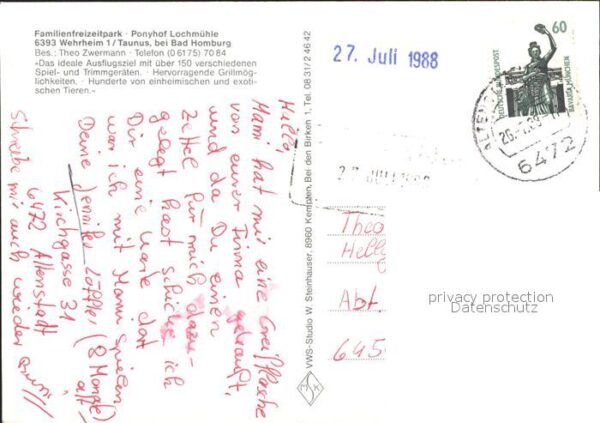 Familienfreizeitpark · Ponyhof Lochmühle
6393 Wehrheim 1/Taunus, bei Bad Homburg
Bes.: Theo Zwermann · Telefon (0 61 75) 70 84
»Das ideale Ausflugsziel mit über 150 verschiedenen
Spiel- und Trimmgeräten. · Hervorragende Grillmög-
lichkeiten. · Hunderte von einheimischen und exoti-
schen Tieren.«
Hallo,
Mami hat mir eine Greifflasche
von eurer Firma gekauft,
und da Du einen
Zettel für mich dazu-
gelegt hast schicke ich
Dir eine Karte dort
war ich mit Mami Spielen
Deine Jennifer Löffler (8 Monate)
alt
Kirchgasse 31
6472 Altenstadt
Schreibe mir auch wieder
VWS-Studio W. Steinhauser, 8960 Kempten, Bei den Birken 1, Tel. 08 31/2 46 42
27. Juli 1988
27. JULI 1988
60
DEUTSCHE BUNDESPOST
BAVARIA MÜNCHEN
6472
Theo
Abt.
645
privacy protection
Datenschutz